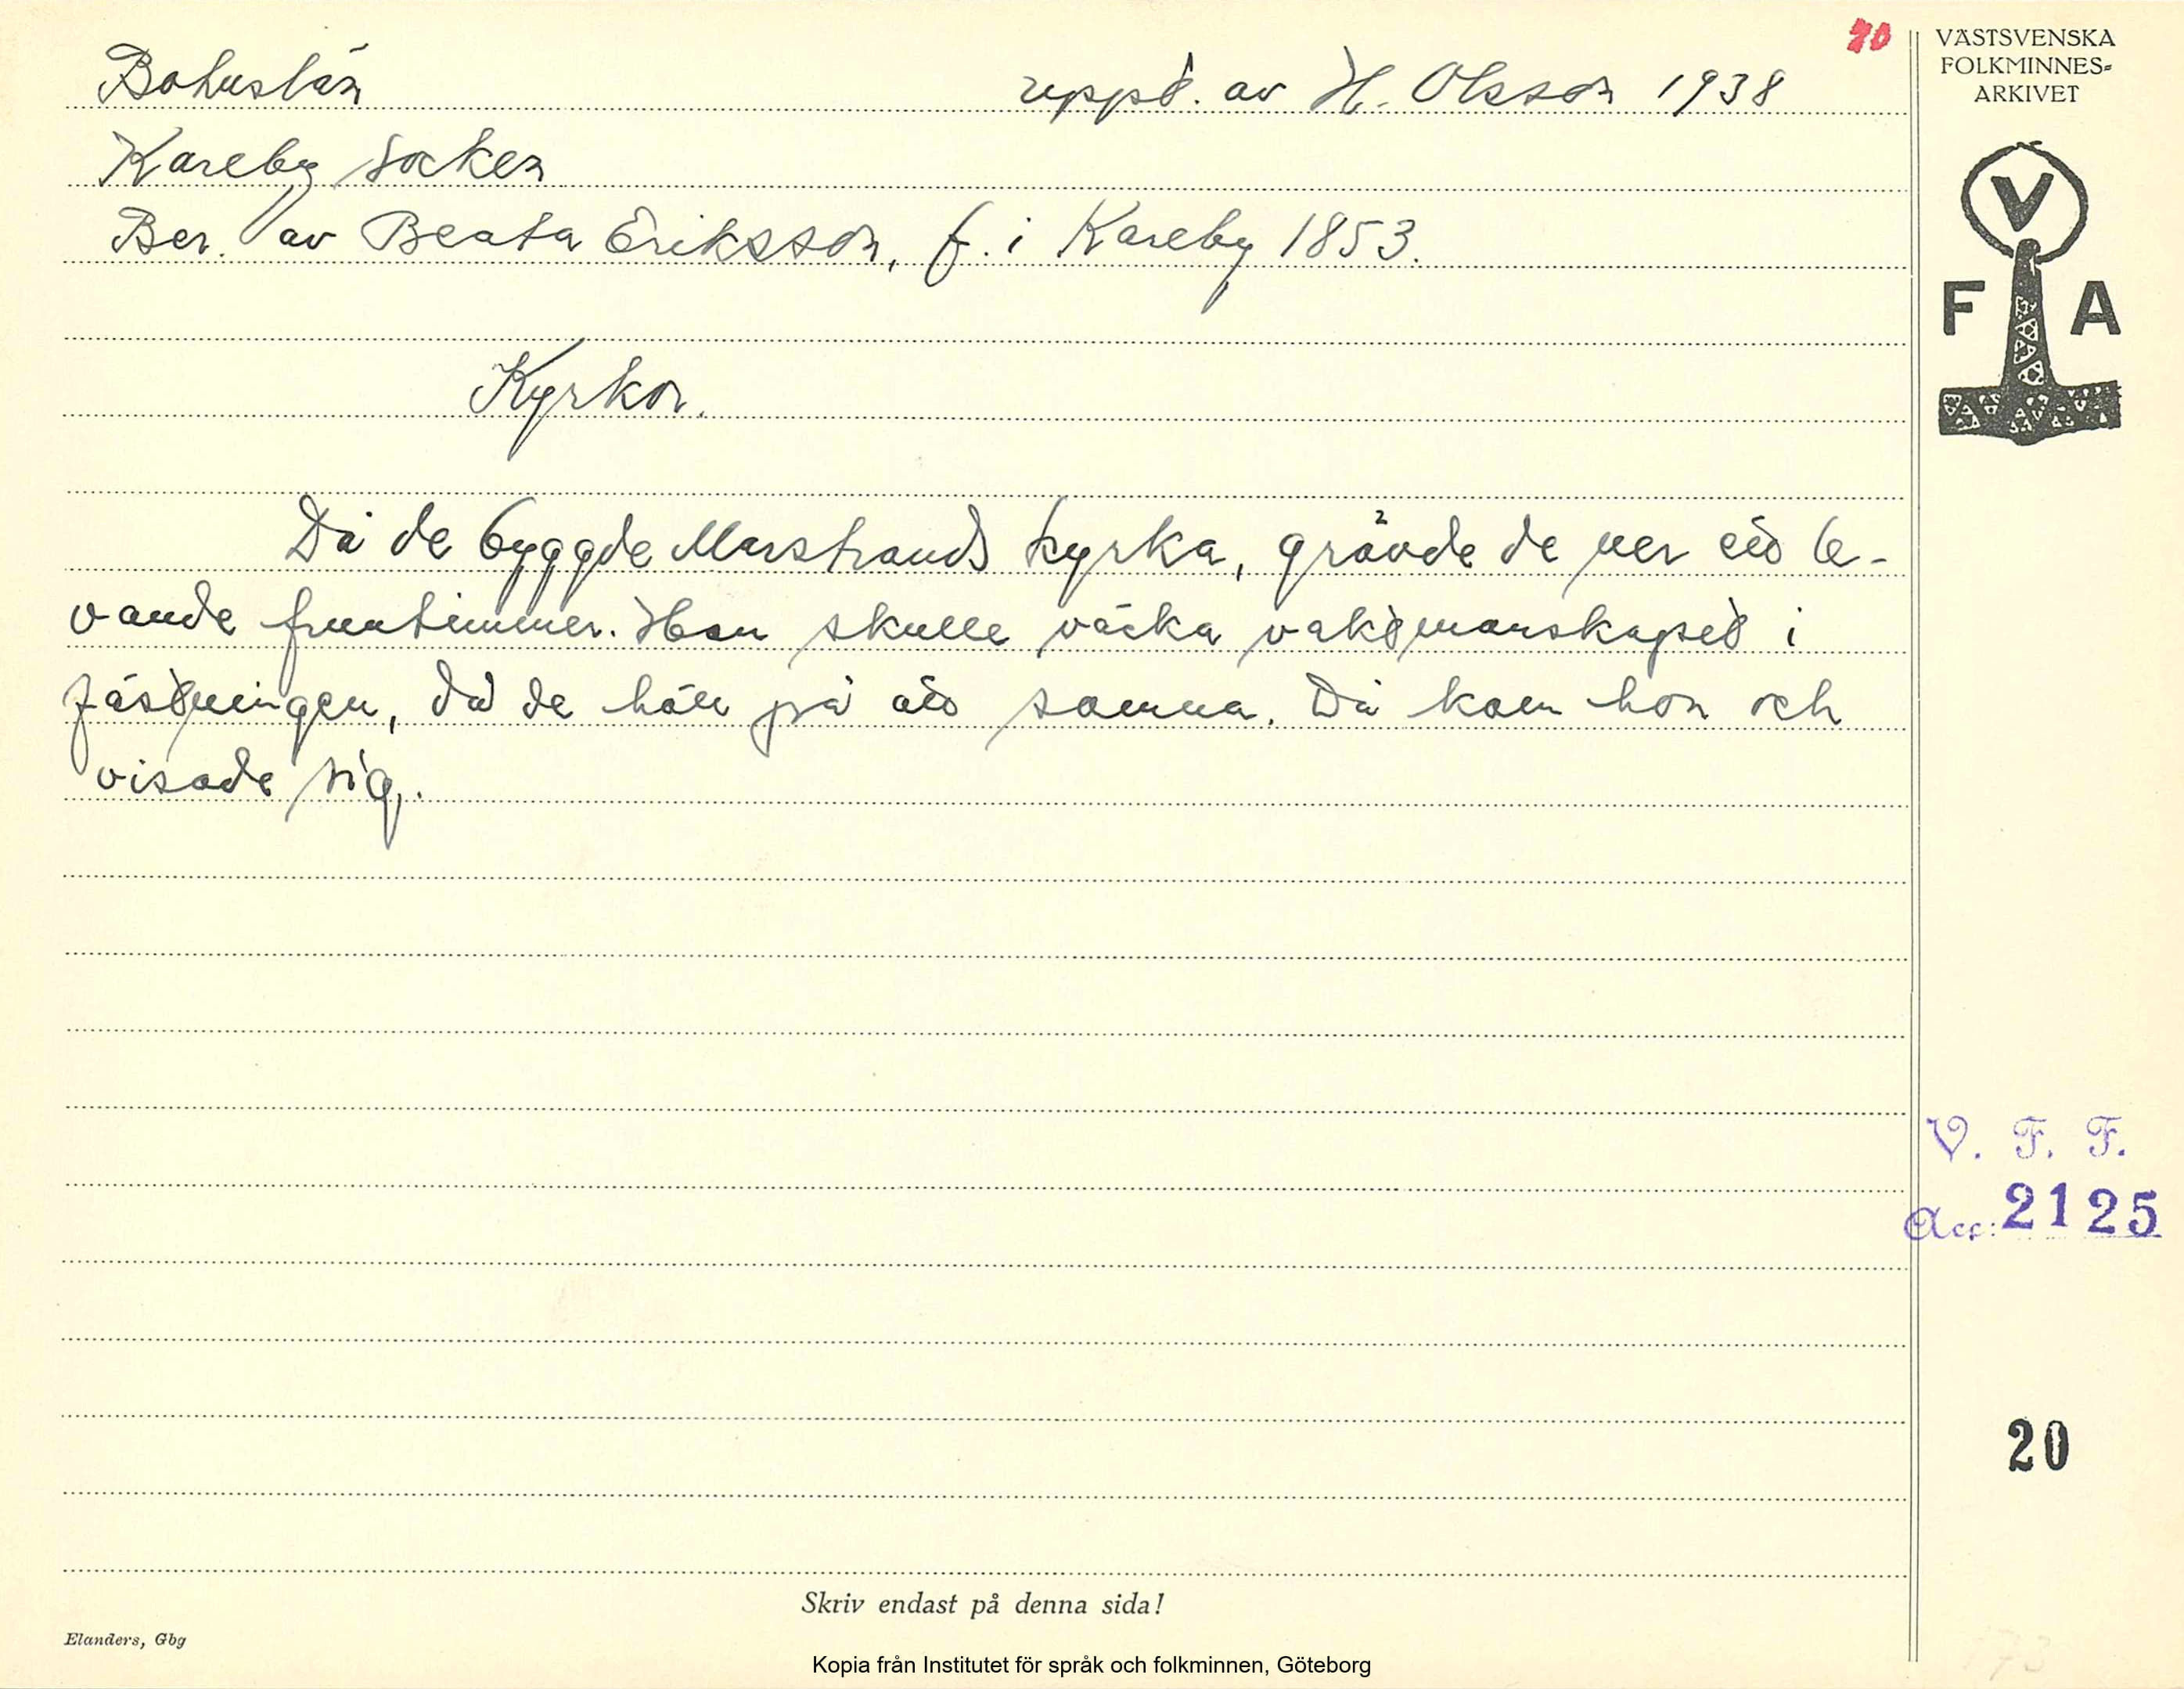 20
Bohuslän uppt. av H. Olsson 1938
Kareby socken
Ber. av Beata Eriksson, f. i Kareby 1853.
Kyrkor.
Då de byggde Marstrands kyrka, grävde de ner ett le-
vande fruntimmer. Hon skulle väcka vaktmanskapet i
fästningen, då de höll på att somna. Då kom hon och
visade sig.
VÄSTSVENSKA
FOLKMINNES-
ARKIVET
V
F A
V. F. F.
Acc: 2125
20
Skriv endast på denna sida!
Elanders, Gbg
Kopia från Institutet för språk och folkminnen, Göteborg